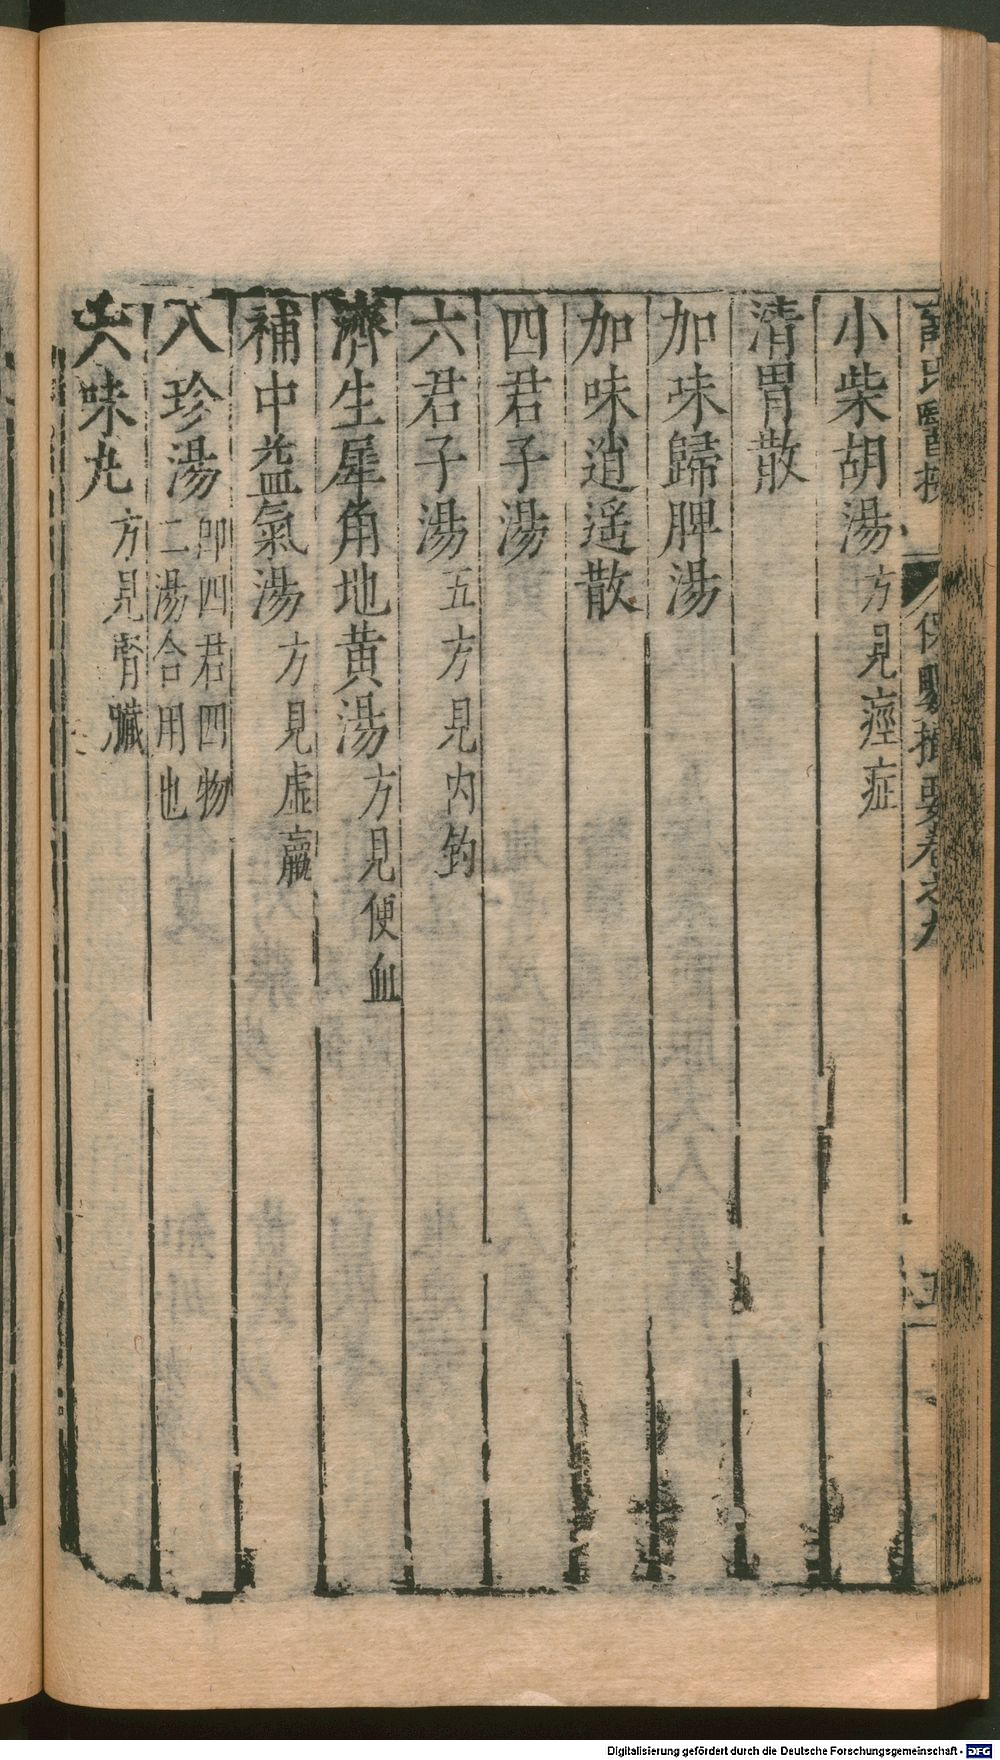 薛氏醫按
保嬰撮要卷之九
小柴胡湯 方見痙症
清胃散
加味歸脾湯
加味逍遥散
四君子湯
六君子湯 五方見内釣
濟生犀角地黄湯 方見便血
補中益氣湯 方見虛羸
八珍湯 即四君四物
二湯合用也
六味丸 方見腎臟
Digitalisierung gefördert durch die Deutsche Forschungsgemeinschaft - DFG